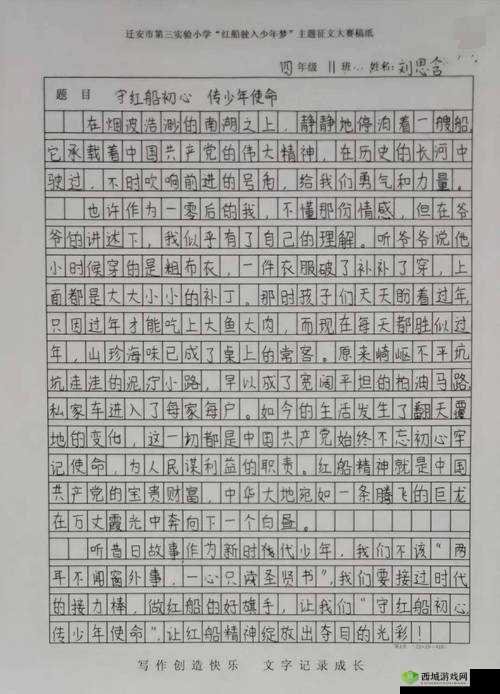 迁安市第三实验小学“红船驶入少年梦”主题征文大赛稿纸
四年级 11班 姓名:刘思含
题 目 守红船初心 传少年使命
在烟波浩渺的南湖之上，静静地停泊着一艘船，
它承载着中国共产党的伟大精神，在历史的长河中
驶过，不时吹响前进的号角，给我们勇气和力量。
也许作为一零后的我，不懂那份情感，但在爷
爷的讲述下，我似乎有了自己的理解。听爷爷说他
小时候穿的是粗布衣，一件衣服破了补补了穿，上
面都是大大小小的补丁。那时孩子们天天盼着过年，
只因过年才能吃上大鱼大肉，而现在每天都胜似过
年，山珍海味已成了桌上的常客。原来崎岖不平坑
坑洼洼的泥泞小路，早以成了宽阔平坦的柏油马路，
私家车进入了每家每户。如今的生活发生了翻天覆
地的变化，这一切都是中国共产党始终不忘初心牢
记使命，为人民谋利益的职责。红船精神就是中国
共产党的宝贵财富，中华大地宛如一条腾飞的巨龙
在万丈霞光中奔向下一个白昼。
听昔日故事作为新时代少年，我们不该“两
耳不闻窗外事，一心只读圣贤书”，我们要接过时代
的接力棒，做红船的好旗手，让我们“守红船初心，
传少年使命”，让红船精神绽放出夺目的光彩！
写作创造快乐 文字记录成长
西城游戏网